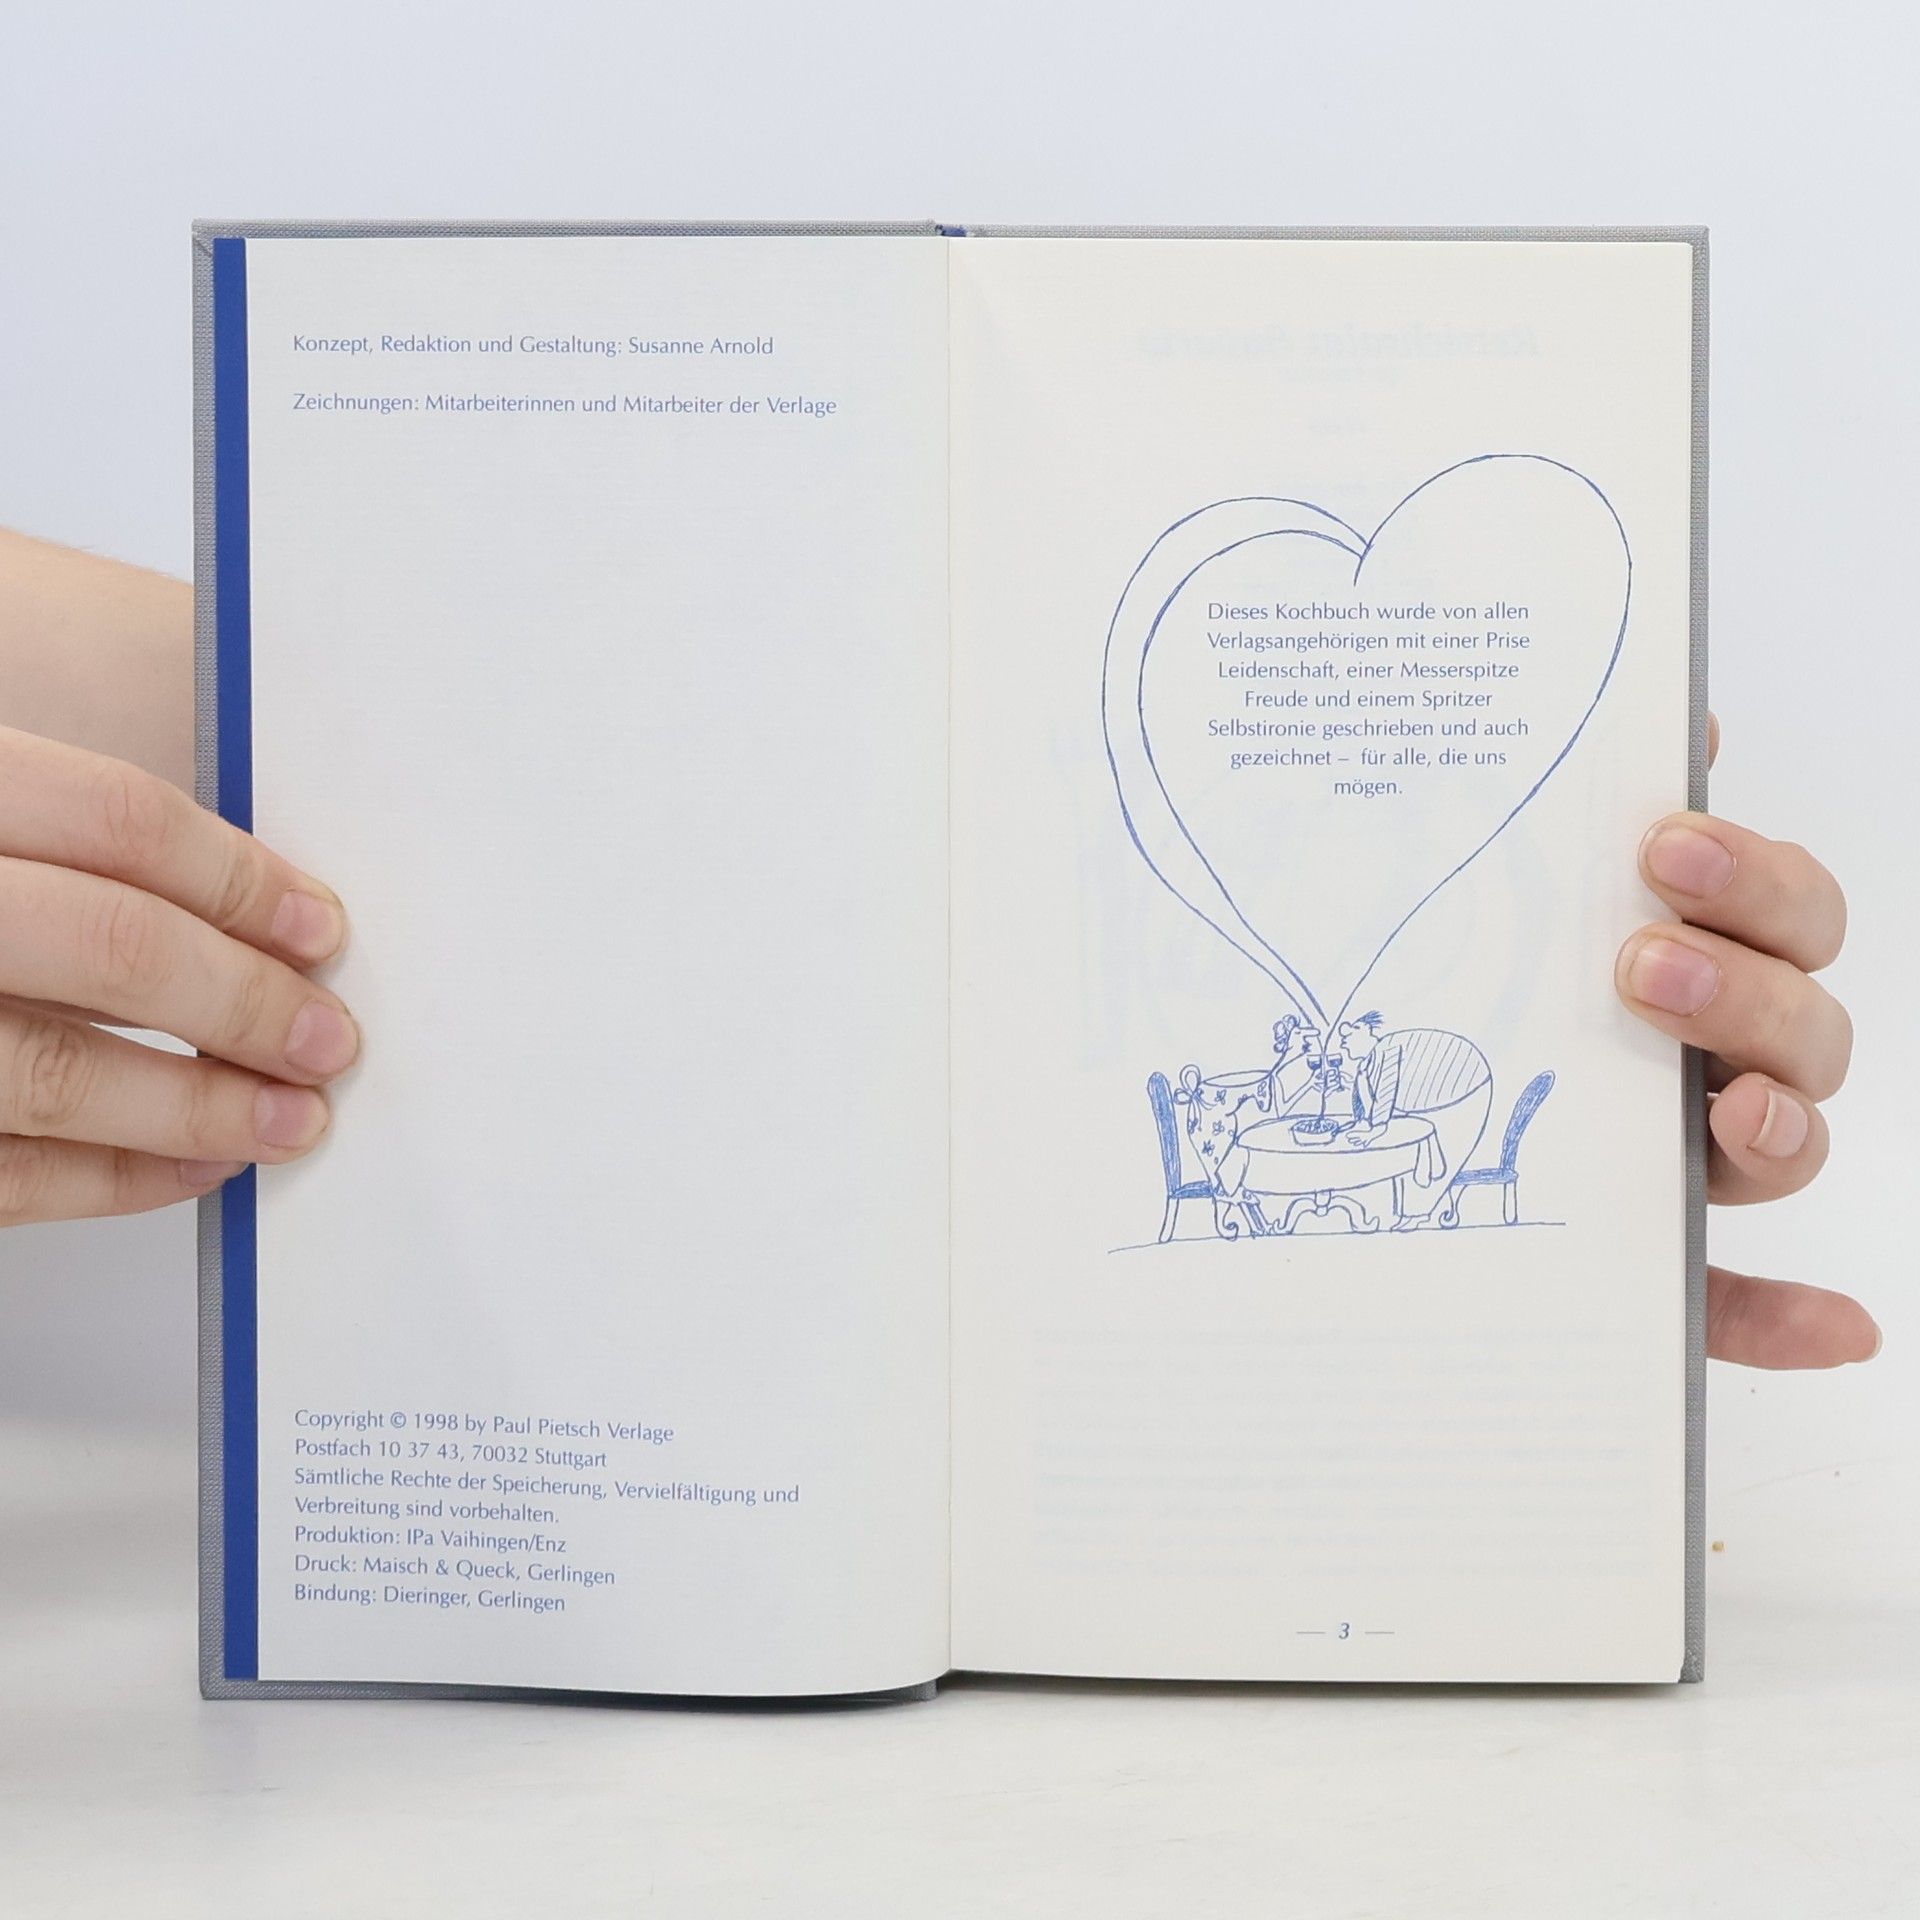 Konzept, Redaktion und Gestaltung: Susanne Arnold
Zeichnungen: Mitarbeiterinnen und Mitarbeiter der Verlage
Copyright © 1998 by Paul Pietsch Verlage
Postfach 10 37 43, 70032 Stuttgart
Sämtliche Rechte der Speicherung, Vervielfältigung und
Verbreitung sind vorbehalten.
Produktion: IPa Vaihingen/Enz
Druck: Maisch & Queck, Gerlingen
Bindung: Dieringer, Gerlingen
Dieses Kochbuch wurde von allen
Verlagsangehörigen mit einer Prise
Leidenschaft, einer Messerspitze
Freude und einem Spritzer
Selbstironie geschrieben und auch
gezeichnet – für alle, die uns
mögen.
— 3 —